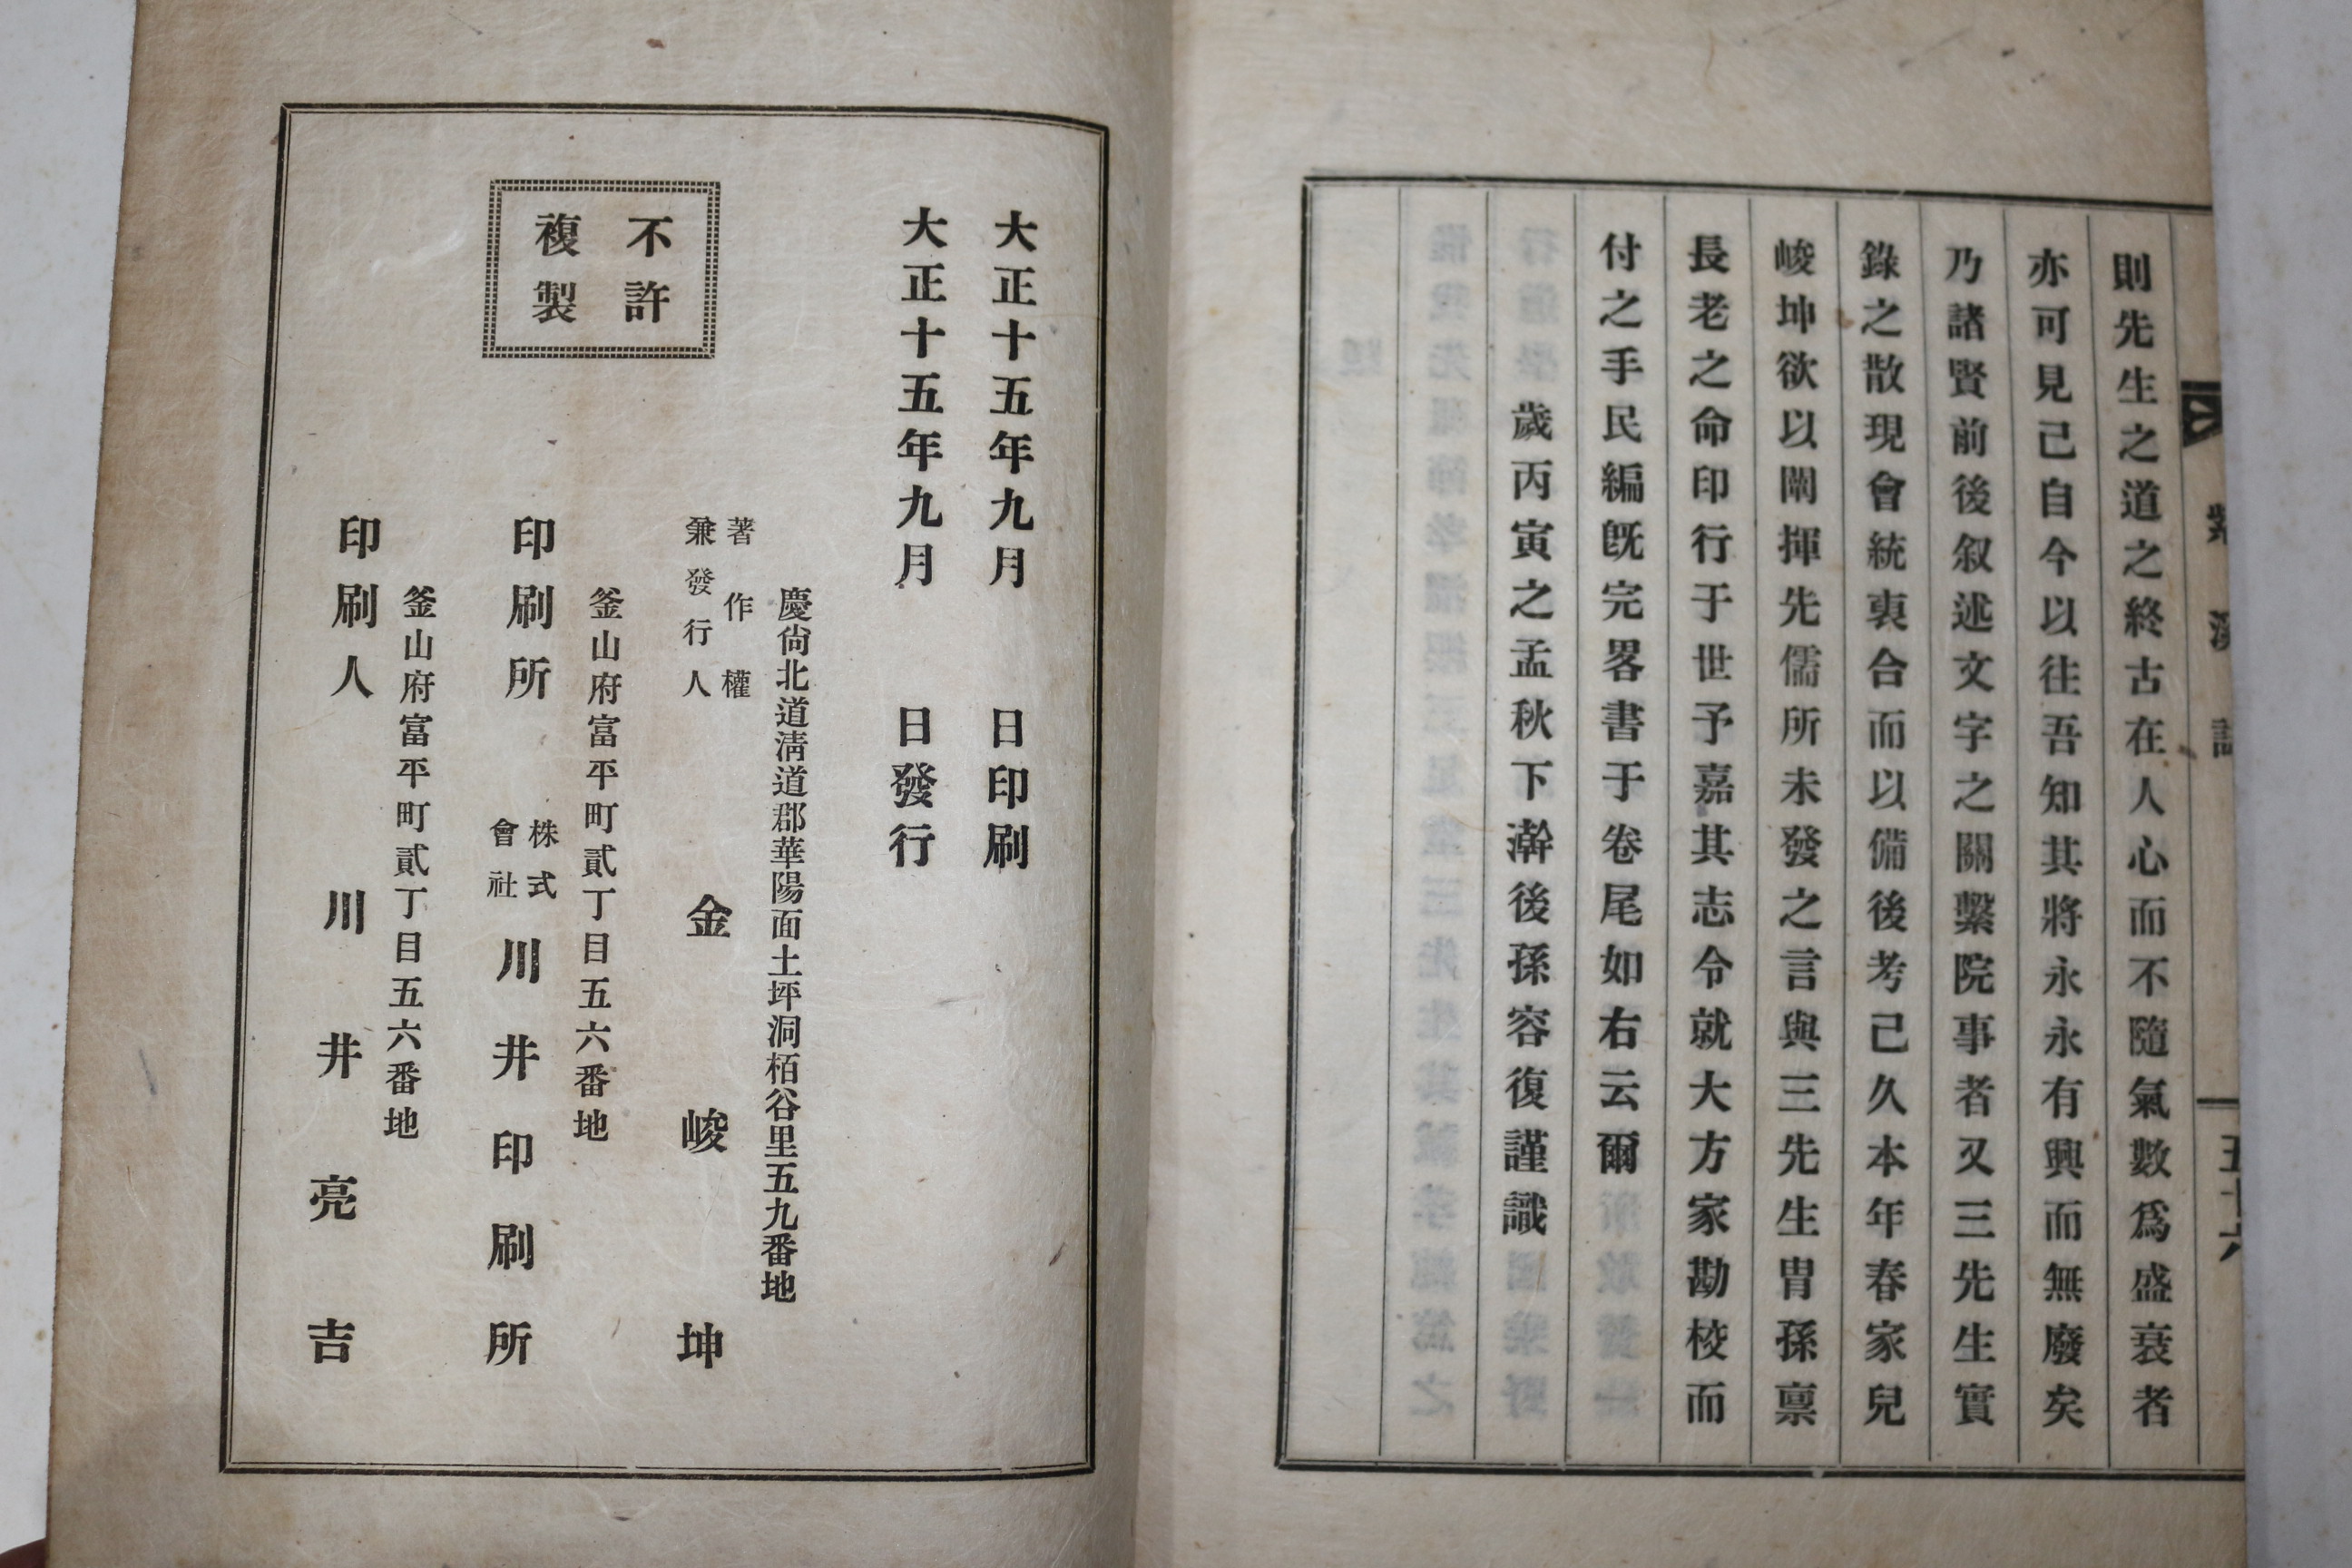 則先生之道之終古在人心而不隨氣數爲盛衰者
亦可見己自今以往吾知其將永永有興而無廢矣
乃諸賢前後叙述文字之關繫院事者又三先生實
錄之散現會統裒合而以備後考己久本年春家兒
峻坤欲以闡揮先儒所未發之言與三先生胄孫稟
長老之命印行于世予嘉其志令就大方家勘校而
付之手民編旣完畧書于卷尾如右云爾
歲丙寅之孟秋下澣後孫容復謹識
大正十五年九月 日印刷
大正十五年九月 日發行
慶尙北道淸道郡華陽面土坪洞栢谷里五九番地
著作權
兼發行人 金峻坤
不許
複製
釜山府富平町貳丁目五六番地
印刷所 株式會社 川井印刷所
釜山府富平町貳丁目五六番地
印刷人 川井亮吉